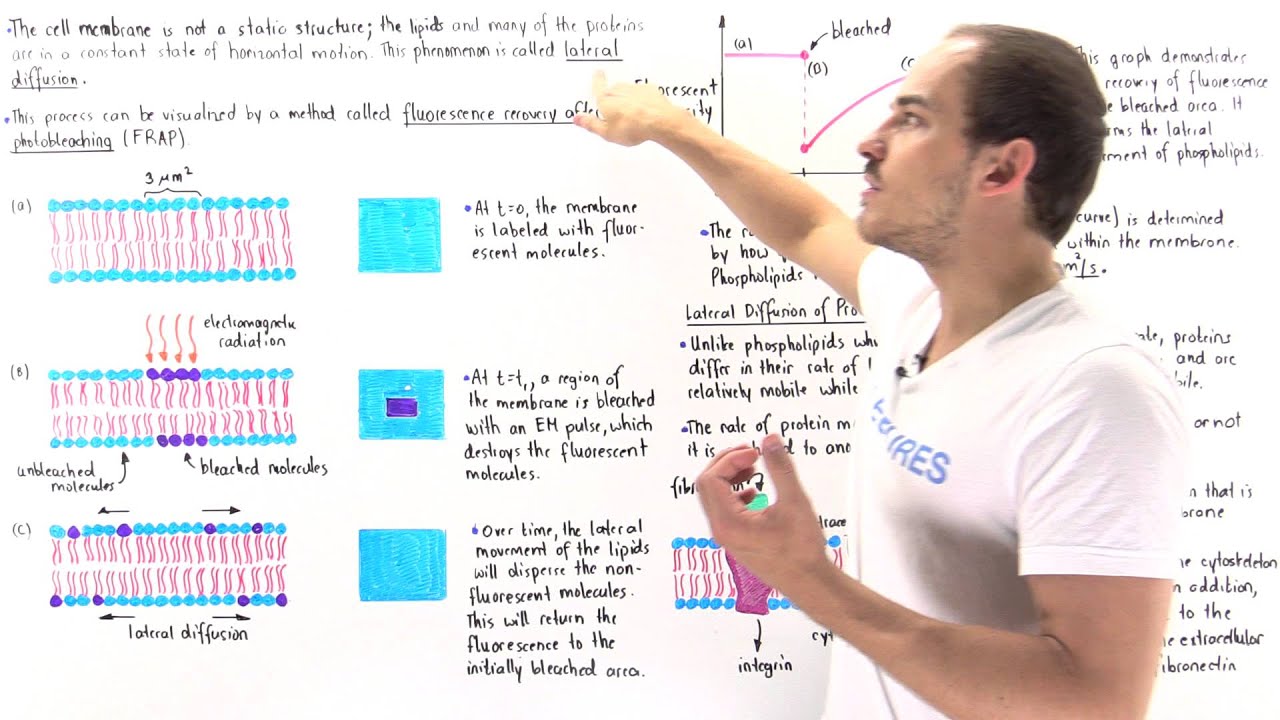 •The cell membrane is not a static structure; the lipids and many of the proteins
are in a constant state of horizontal motion. This phenomenon is called lateral
diffusion.
•This process can be visualized by a method called fluorescence recovery after
photobleaching (FRAP).
3 µm²
(a)
•At t=0, the membrane
is labeled with fluor-
escent molecules.
electromagnetic
radiation
(B)
•At t=t₁, a region of
the membrane is bleached
with an EM pulse, which
destroys the fluorescent
molecules.
unbleached
molecules
bleached molecules
(C)
•Over time, the lateral
movement of the lipids
will disperse the non-
fluorescent molecules.
This will return the
fluorescence to the
initially bleached area.
lateral diffusion
(a)
bleached
(B)
(C
This graph demonstrates
recovery of fluorescence
bleached area. It
the lateral
of phospholipids.
•The
by how
Phospholipids
curve) is determined
within the membrane.
m²/s.
Lateral Diffusion of
•Unlike phospholipids
differ in their rate of
relatively mobile while
proteins
and are
•The rate of protein
it is to
or not
integrin
that is
the cytoskeleton
addition,
to the
extracellular
fibronectin
LECTURES